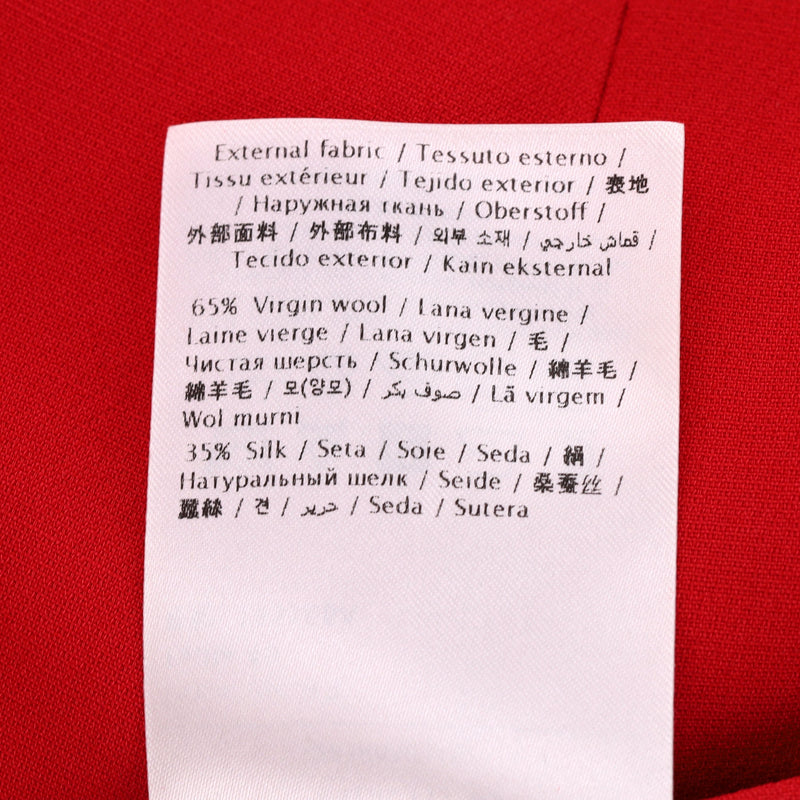 External fabric / Tessuto esterno /
Tissu extérieur / Tejido exterior / 表地
/ Наружная ткань / Oberstoff /
外部面料 / 外部布料 / 외부 소재 / قماش خارجي /
Tecido exterior / Kain eksternal
65% Virgin wool / Lana vergine /
Laine vierge / Lana virgen / 毛 /
Чистая шерсть / Schurwolle / 綿羊毛 /
綿羊毛 / 모(양모) / صوف بكر / Lã virgem /
Wol murni
35% Silk / Seta / Soie / Seda / 絹 /
Натуральный шелк / Seide / 桑蚕丝 /
蠶絲 / 견 / حرير / Seda / Sutera